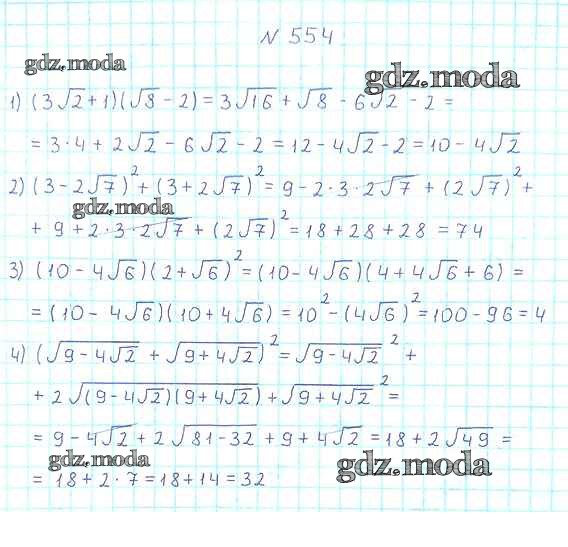 N 554
gdz.moda
gdz.moda
1) (3√2+1)(√8-2)=3√16+√8-6√2-2=
=3·4+2√2-6√2-2=12-4√2-2=10-4√2
2) (3-2√7)²+(3+2√7)²=9-2·3·2√7+(2√7)²+
gdz.moda
+9+2·3·2√7+(2√7)²=18+28+28=74
3) (10-4√6)(2+√6)²=(10-4√6)(4+4√6+6)=
=(10-4√6)(10+4√6)=10²-(4√6)²=100-96=4
4) (√(9-4√2)+√(9+4√2))²=√(9-4√2)²+
+2√((9-4√2)(9+4√2))+√(9+4√2)²=
=9-4√2+2√(81-32)+9+4√2=18+2√49=
gdz.moda
gdz.moda
=18+2·7=18+14=32